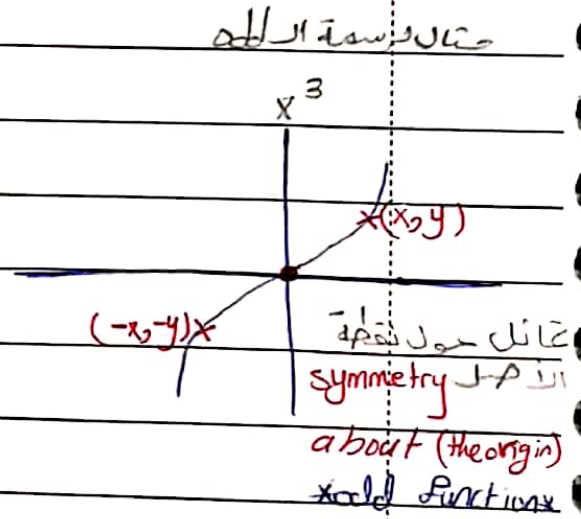 مثال لرسمة الـ odd
x³
(x, y)
(-x, -y)
تماثل حول نقطة
الأصل symmetry
about (the origin)
*odd function*